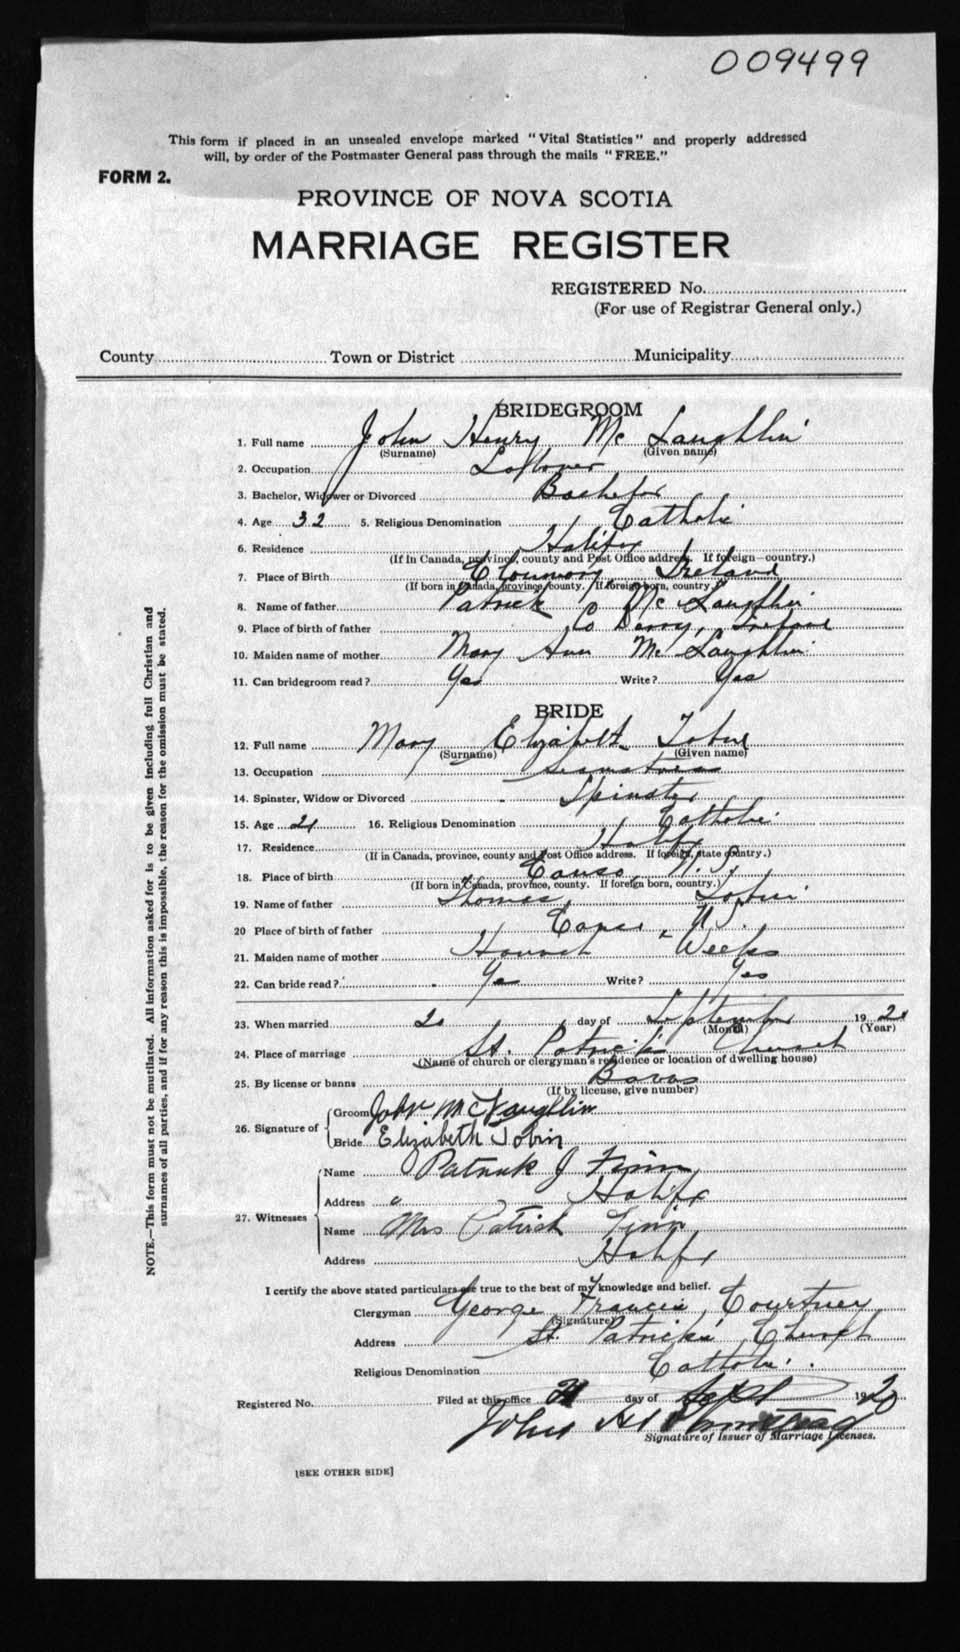 009499
This form if placed in an unsealed envelope marked "Vital Statistics" and properly addressed
will, by order of the Postmaster General pass through the mails "FREE."
FORM 2.
PROVINCE OF NOVA SCOTIA
MARRIAGE REGISTER
REGISTERED No.
(For use of Registrar General only.)
County Town or District Municipality
BRIDEGROOM
1. Full name John Henry Mc Laughlin
(Surname) (Given name)
2. Occupation
3. Bachelor, Widower or Divorced Bachelor
4. Age 32 5. Religious Denomination Catholic
6. Residence Halifax
(If In Canada, province, county and Post Office address. If foreign—country.)
7. Place of Birth Ireland
(If born in Canada, province/county. If foreign born, country.)
8. Name of father Patrick Mc Laughlin
9. Place of birth of father Co Derry, Ireland
10. Maiden name of mother Mary Ann Mc Laughlin
11. Can bridegroom read? Yes Write? Yes
BRIDE
12. Full name Mary Elizabeth Tobin
(Surname) (Given name)
13. Occupation Seamstress
14. Spinster, Widow or Divorced Spinster
15. Age 21 16. Religious Denomination Catholic
17. Residence Halifax
(If in Canada, province, county and Post Office address. If foreign, state country.)
18. Place of birth Canso, N.S.
(If born in Canada, province, county. If foreign born, country.)
19. Name of father Thomas Tobin
20 Place of birth of father Canso, N.S.
21. Maiden name of mother Hannah Weeks
22. Can bride read? Yes Write? Yes
23. When married 20 day of September 1920
(Month) (Year)
24. Place of marriage St. Patrick's Church
(Name of church or clergyman's residence or location of dwelling house)
25. By license or banns Banns
(If by license, give number)
26. Signature of
Groom John McLaughlin
Bride Elizabeth Tobin
27. Witnesses
Name Patrick J Finn
Address Halifax
Name Mrs Patrick Finn
Address Halifax
I certify the above stated particulars are true to the best of my knowledge and belief.
Clergyman George Francis Courtney
(Signature)
Address St. Patrick's Church
Religious Denomination Catholic.
Registered No. Filed at this office 21 day of Sept 1920
John
Signature of Issuer of Marriage Licenses.
[SEE OTHER SIDE]
NOTE.—This form must not be mutilated. All information asked for is to be given including full Christian and
surnames of all parties, and if for any reason this is impossible, the reason for the omission must be stated.